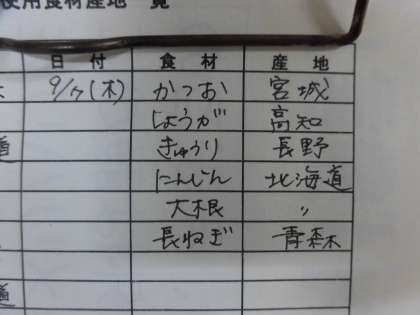 使用食材産地一覧
日付 食材 産地
9/7(木) かつお 宮城
しょうが 高知
きゅうり 長野
にんじん 北海道
大根 〃
長ねぎ 青森